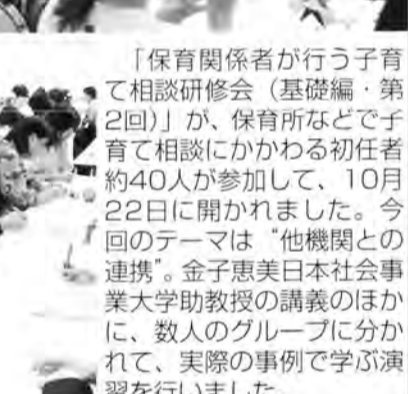 「保育関係者が行う子育
て相談研修会（基礎編・第
2回）」が、保育所などで子
育て相談にかかわる初任者
約40人が参加して、10月
22日に開かれました。今
回のテーマは“他機関との
連携”。金子恵美日本社会事
業大学助教授の講義のほか
に、数人のグループに分か
れて、実際の事例で学ぶ演
習を行いました。